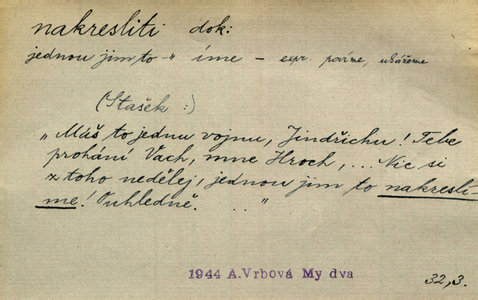 nakresliti dok:
jednou jim to -" íme - expr. povíme, ukážeme
(Stašek :)
„Máš to jednu vojnu, Jindřichu! Tebe
prohání Vach, mne Hroch, ... Nic si
z toho nedělej, jednou jim to nakreslí-
me! Ouhledně. ..."
1944 A.Vrbová My dva
32,3.